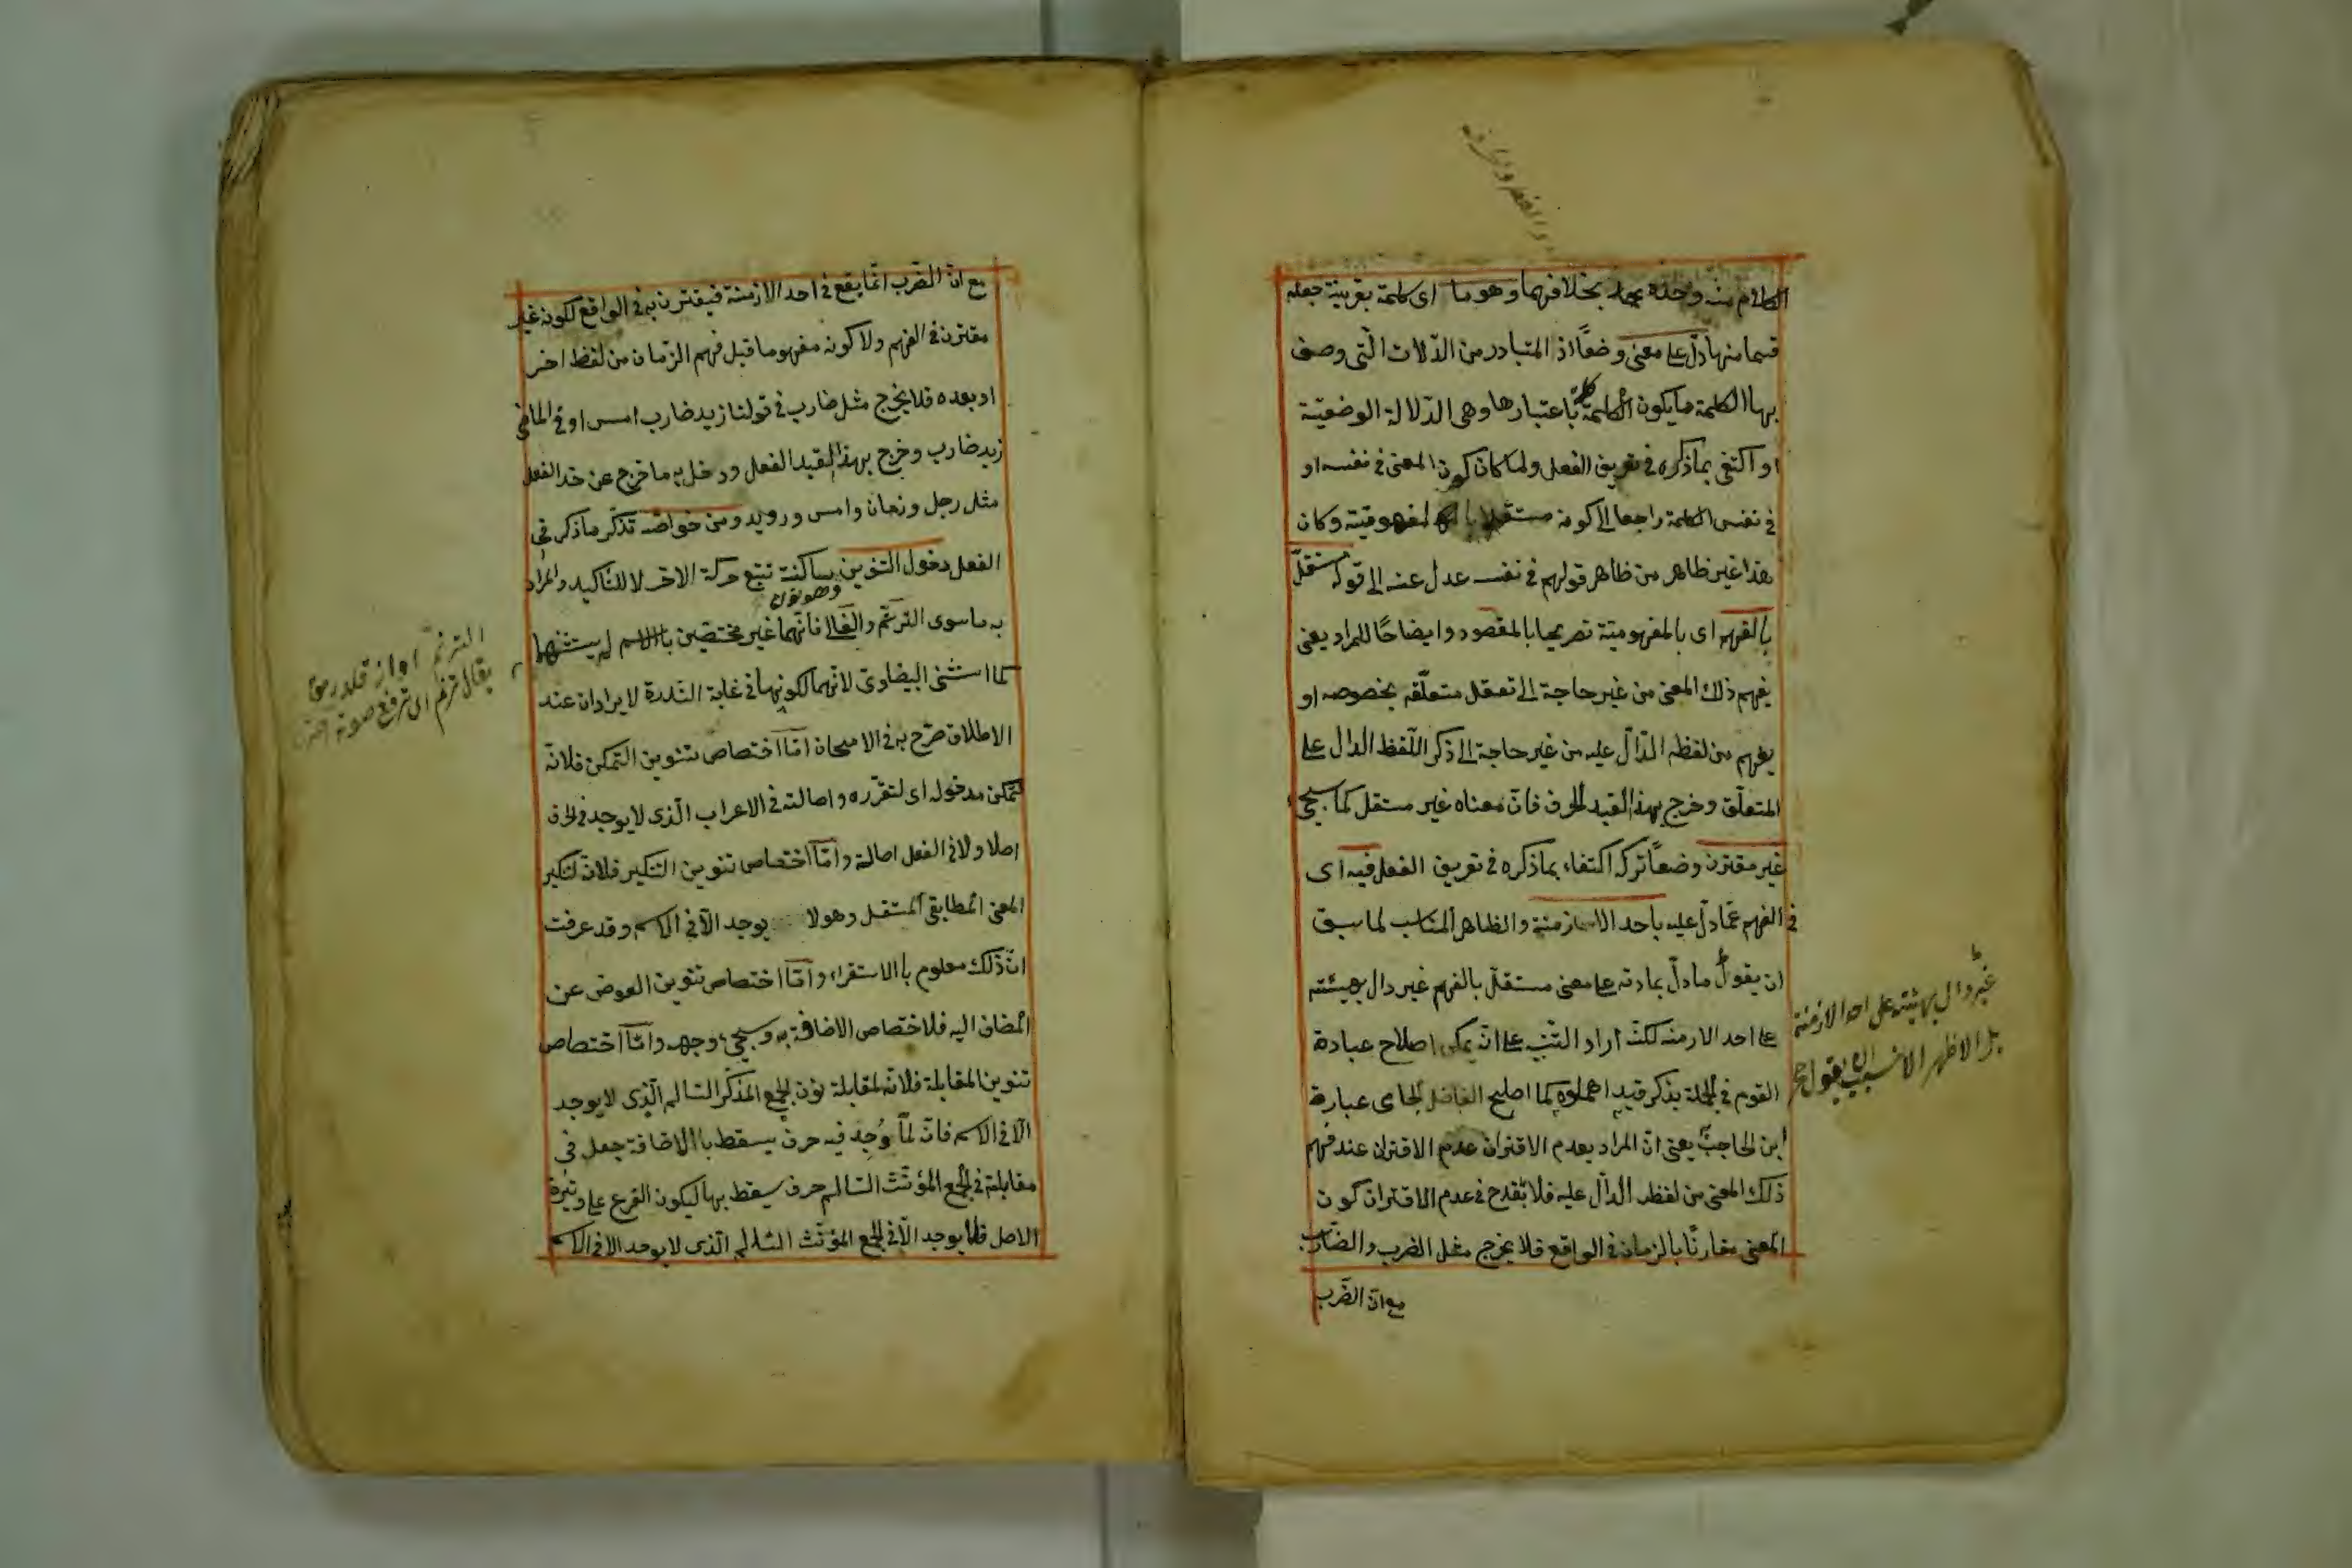 الكلام منه وحده بخلافهما وهو ما اى كلمة بقرينة جعله
قسما منها دلّ على معنى وضعًا اذ المتبادر من الدّلات الّتى وصف
بها الكلمة ما يكون الكلمة كلمة باعتبارها وهى الدّلالة الوضعيّة
او اكتفى بما ذكره فى تعريف الفعل ولما كان كون المعنى فى نفسه او
فى نفس الكلمة راجعا الى كونه مستقلا بالمفهوميّة وكان
هذا غير ظاهر من ظاهر قولهم فى نفسه عدل عنه الى قوله مستقلّ
بالفهم اى بالمفهوميّة تصريحا بالمقصود وايضاحًا للمراد يعنى
يفهم ذلك المعنى من غير حاجة الى تعقل متعلّقه بخصوصه او
يفهم من لفظه الدّالّ عليه من غير حاجة الى ذكر اللّفظ الدال على
المتعلّق وخرج بهذا القيد الحرف فانّ معناه غير مستقل كما سيجى
غير مقترن وضعًا تركه اكتفاء بما ذكره فى تعريف الفعل فيه اى
فى الفهم عمّا دلّ عليه باحد الازمنة والظاهر المناسب لما سبق
ان يقول ما دلّ بمادته على معنى مستقلّ بالفهم غير دال بهيئته
على احد الازمنه لكنّه اراد التنبيه على انّه يمكن اصلاح عبادة
القوم فى الجملة بذكر قيد اهملوه كما اصلح الفاضل الجامى عبارة
ابن الحاجب يعنى انّ المراد بعدم الاقتران عدم الاقتران عند فهم
ذلك المعنى من لفظه الدّالّ عليه فلا يقدح فى عدم الاقتران كون
المعنى مقارنًا بالزمان فى الواقع فلا يخرج مثل الضرب والضّارب
مع انّ الضّرب
غير دال بهيئته على احد الازمنة
بل الاظهر الانسب ان يقول
مع انّ الضّرب انّما يقع فى احد الازمنة فيقترن به فى الواقع لكونه غير
مقترن فى الفهم ولا كونه مفهوما قبل فهم الزّمان من لفظ اخر
او بعده فلا يخرج مثل ضارب فى قولنا زيد ضارب امس او فى الماضى
زيد ضارب وخرج بهذا القيد الفعل ودخل به ما خرج عن حدّ الفعل
مثل رجل وزمان وامس ورويد ومن خواصّه تذكّر ما ذكر فى
الفعل دخول التنوين وهو نون ساكنة تتبع حركة الاخر لا للتاكيد والمراد
به ما سوى الترنّم والغالى فانّهما غير مختصّين بالاسم لم يستثنهما
كما استثنى البيضاوى لانّهما لكونهما فى غاية النّدرة لا يرادان عند
الاطلاق صرّح به فى الامتحان امّا اختصاص تنوين التمكن فلانّه
لتمكن مدخوله اى لتقرّره واصالته فى الاعراب الّذى لا يوجد فى الحرف
اصلا ولا فى الفعل اصالة وامّا اختصاص تنوين التنكير فلانّه لتنكير
المعنى المطابقى المستقل وهو لا يوجد الّا فى الاسم وقد عرفت
انّ ذلك معلوم بالاستقراء وامّا اختصاص تنوين العوض عن
المضاف اليه فلاختصاص الاضافة به وسيجئ وجهه وامّا اختصاص
تنوين المقابلة فلانّه لمقابلة نون الجمع المذكّر السّالم الّذى لا يوجد
الّا فى الاسم فانّه لمّا وُجد فيه حرف يسقط بالاضافة جعل فى
مقابلته فى الجمع المؤنّث السّالم حرف يسقط بها ليكون الفرع على وتيرة
الاصل فلا يوجد الّا فى الجمع المؤنّث السّالم الّذى لا يوجد الا فى الاسم
الترنّم اواز
يقال ترنم اى ترفع صوته